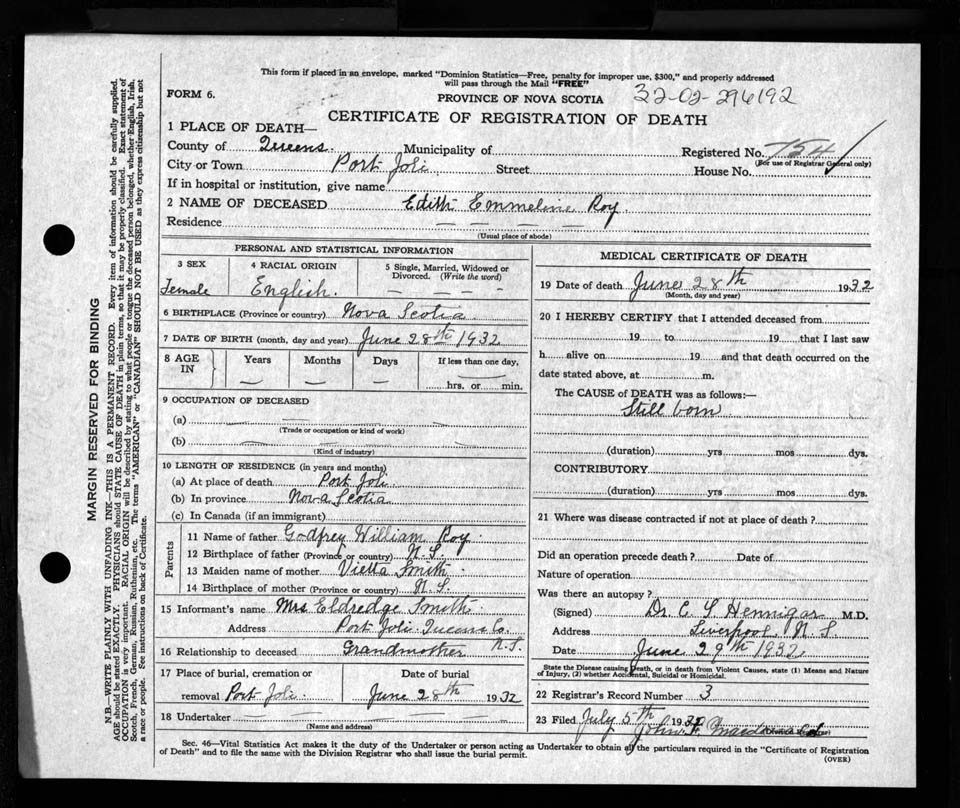 This form if placed in an envelope, marked "Dominion Statistics—Free, penalty for improper use, $300," and properly addressed
will pass through the Mail "FREE"
FORM 6.
PROVINCE OF NOVA SCOTIA
32-02-296192
CERTIFICATE OF REGISTRATION OF DEATH
1 PLACE OF DEATH—
County of Queens. Municipality of Registered No. 754
(For use of Registrar General only)
City or Town Port Joli Street House No.
If in hospital or institution, give name
2 NAME OF DECEASED Edith Emmeline Roy.
Residence — — — —
(Usual place of abode)
PERSONAL AND STATISTICAL INFORMATION
3 SEX 4 RACIAL ORIGIN 5 Single, Married, Widowed or
Divorced. (Write the word)
Female English. — — — —
6 BIRTHPLACE (Province or country) Nova Scotia
7 DATE OF BIRTH (month, day and year) June 28th 1932
8 AGE IN Years Months Days If less than one day,
— — — hrs. or min.
9 OCCUPATION OF DECEASED
(a) — — —
(Trade or occupation or kind of work)
(b) — — —
(Kind of industry)
10 LENGTH OF RESIDENCE (in years and months)
(a) At place of death Port Joli.
(b) In province Nova Scotia
(c) In Canada (if an immigrant)
Parents
11 Name of father Godfrey William Roy.
12 Birthplace of father (Province or country) N.S.
13 Maiden name of mother Vietta Smith.
14 Birthplace of mother (Province or country) N.S.
15 Informant's name Mrs. Eldredge Smith.
Address Port Joli. Queens Co. N.S.
16 Relationship to deceased Grandmother
17 Place of burial, cremation or Date of burial
removal Port Joli June 28th 1932
18 Undertaker — — — —
(Name and address)
MEDICAL CERTIFICATE OF DEATH
19 Date of death June 28th 1932
(Month, day and year)
20 I HEREBY CERTIFY that I attended deceased from
19 to 19 that I last saw
h alive on 19 and that death occurred on the
date stated above, at m.
The CAUSE of DEATH was as follows:—
Still born
(duration) yrs mos dys.
CONTRIBUTORY
(duration) yrs mos dys.
21 Where was disease contracted if not at place of death?
Did an operation precede death? Date of
Nature of operation
Was there an autopsy?
(Signed) Dr. E S Hennigar M.D.
Address Liverpool N.S.
Date June 29th 1932
State the Disease causing Death, or in death from Violent Causes, state (1) Means and Nature
of Injury, (2) whether Accidental, Suicidal or Homicidal.
22 Registrar's Record Number 3
23 Filed July 5th 1932 John
Sec. 46—Vital Statistics Act makes it the duty of the Undertaker or person acting as Undertaker to obtain all the particulars required in the "Certificate of Registration
of Death" and to file the same with the Division Registrar who shall issue the burial permit.
(OVER)
MARGIN RESERVED FOR BINDING
N.B.—WRITE PLAINLY WITH UNFADING INK—THIS IS A PERMANENT RECORD. Every item of information should be carefully supplied.
AGE should be stated EXACTLY. PHYSICIANS should STATE CAUSE OF DEATH in plain terms, so that it may be properly classified. Exact statement of
OCCUPATION is very important. RACIAL ORIGIN will be described by stating to what people or tongue the deceased person belonged, whether English, Irish,
Scotch, French, German, Russian, Ruthenian, etc. The terms "AMERICAN" or "CANADIAN" SHOULD NOT BE USED as they express citizenship but not
a race or people. See instructions on back of Certificate.